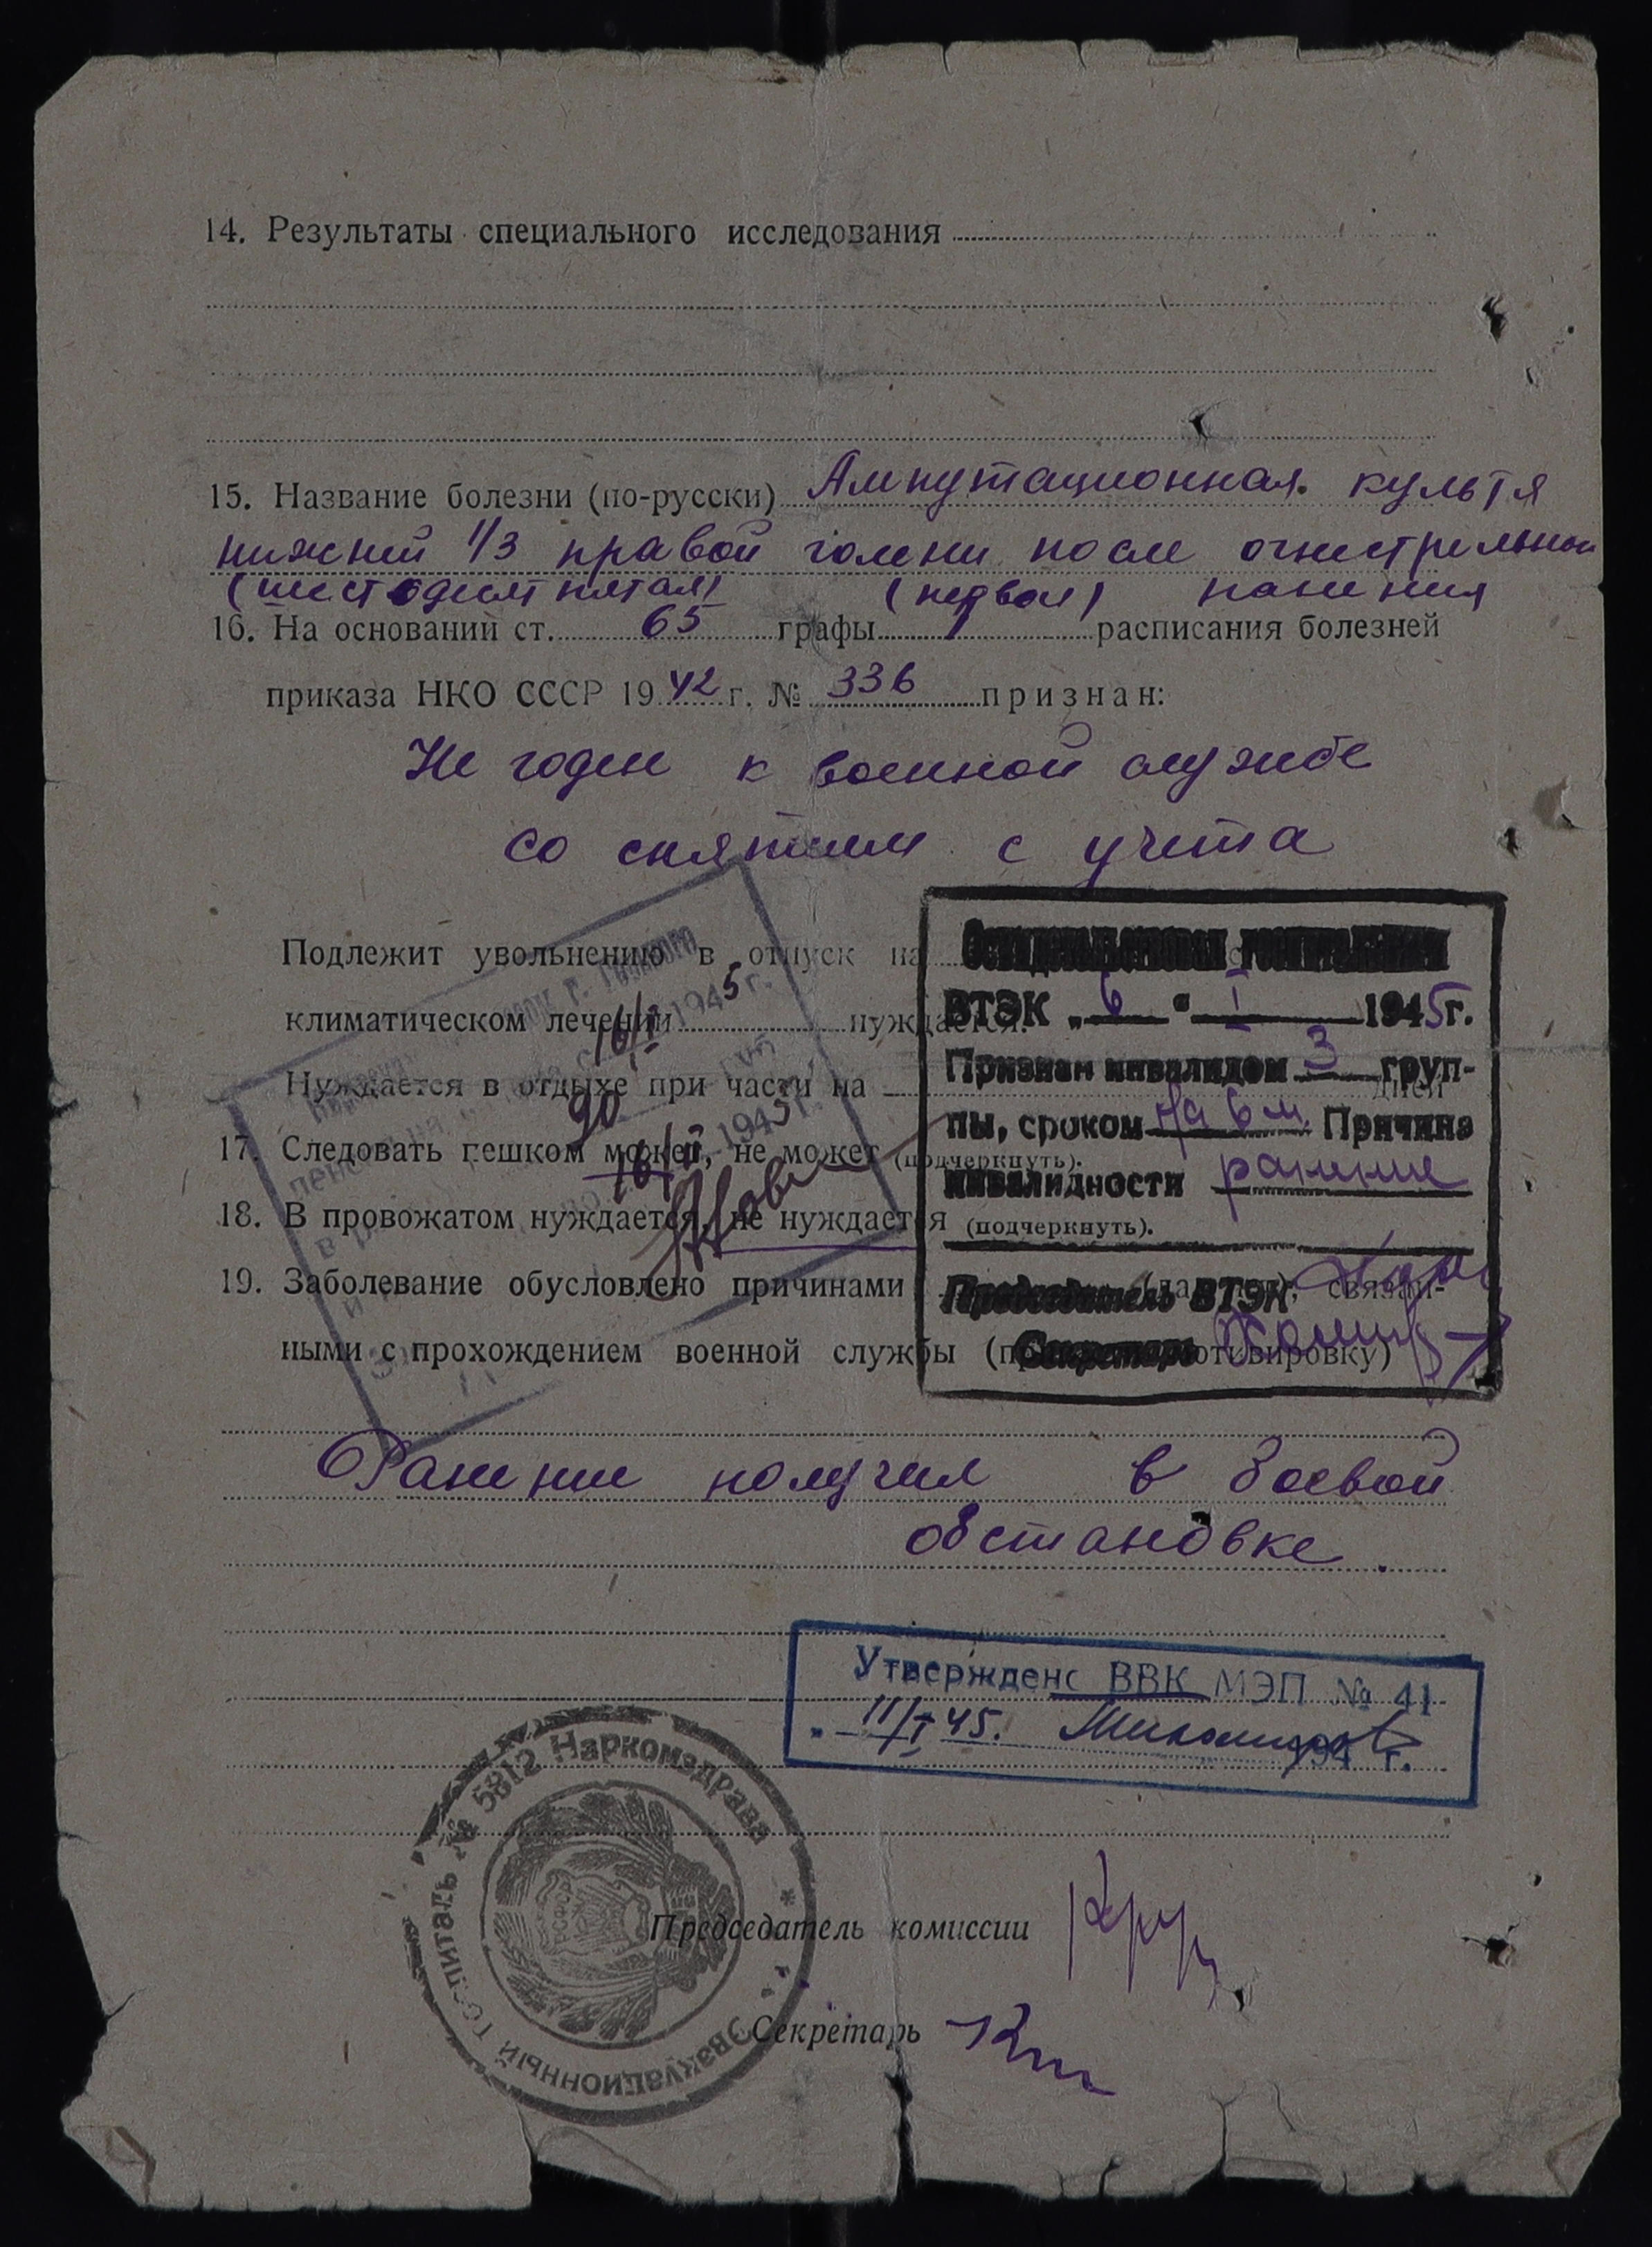 14. Результаты специального исследования
15. Название болезни (по-русски) Ампутационная культя
нижней 1/3 правой голени после огнестрельной
(шестьдесят пятая) (первой) ранения
16. На основании ст. 65 графы 1 расписания болезней
приказа НКО СССР 1942 г. № 336 признан:
Не годен к военной службе
со снятием с учета
Подлежит увольнению в отпуск на
климатическом лечении нуждается.
Нуждается в отдыхе при части на дней
17. Следовать пешком может, не может (подчеркнуть).
18. В провожатом нуждается, не нуждается (подчеркнуть).
19. Заболевание обусловлено причинами связан-
ными с прохождением военной службы
1945 г.
16/I
90
1945 г.
16/II
Освидетельствован госпитальной
ВТЭК „6“ I 1945 г.
Признан инвалидом 3 груп-
пы, сроком на 6 м. Причина
инвалидности ранение
Председатель ВТЭК
Секретарь
Ранение получил в боевой
обстановке.
Утверждено ВВК МЭП № 41
11/I 45. 194 г.
Эвакуационный госпиталь № 5812 Наркомздрава
РСФСР
Председатель комиссии
Секретарь